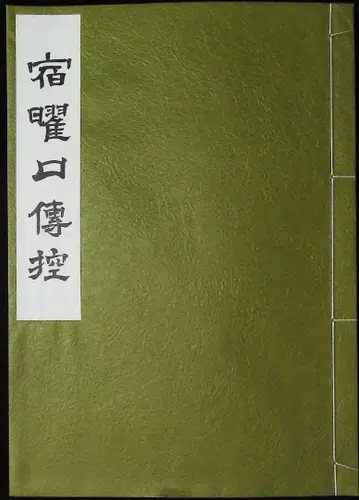 宿曜口傳控